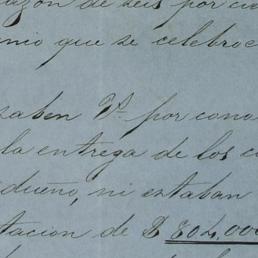 razon de seis por ci
nio que se celebró
saben Vs. por cono
la entrega de los c
dueño, ni estaban
tacion de $ 804,000